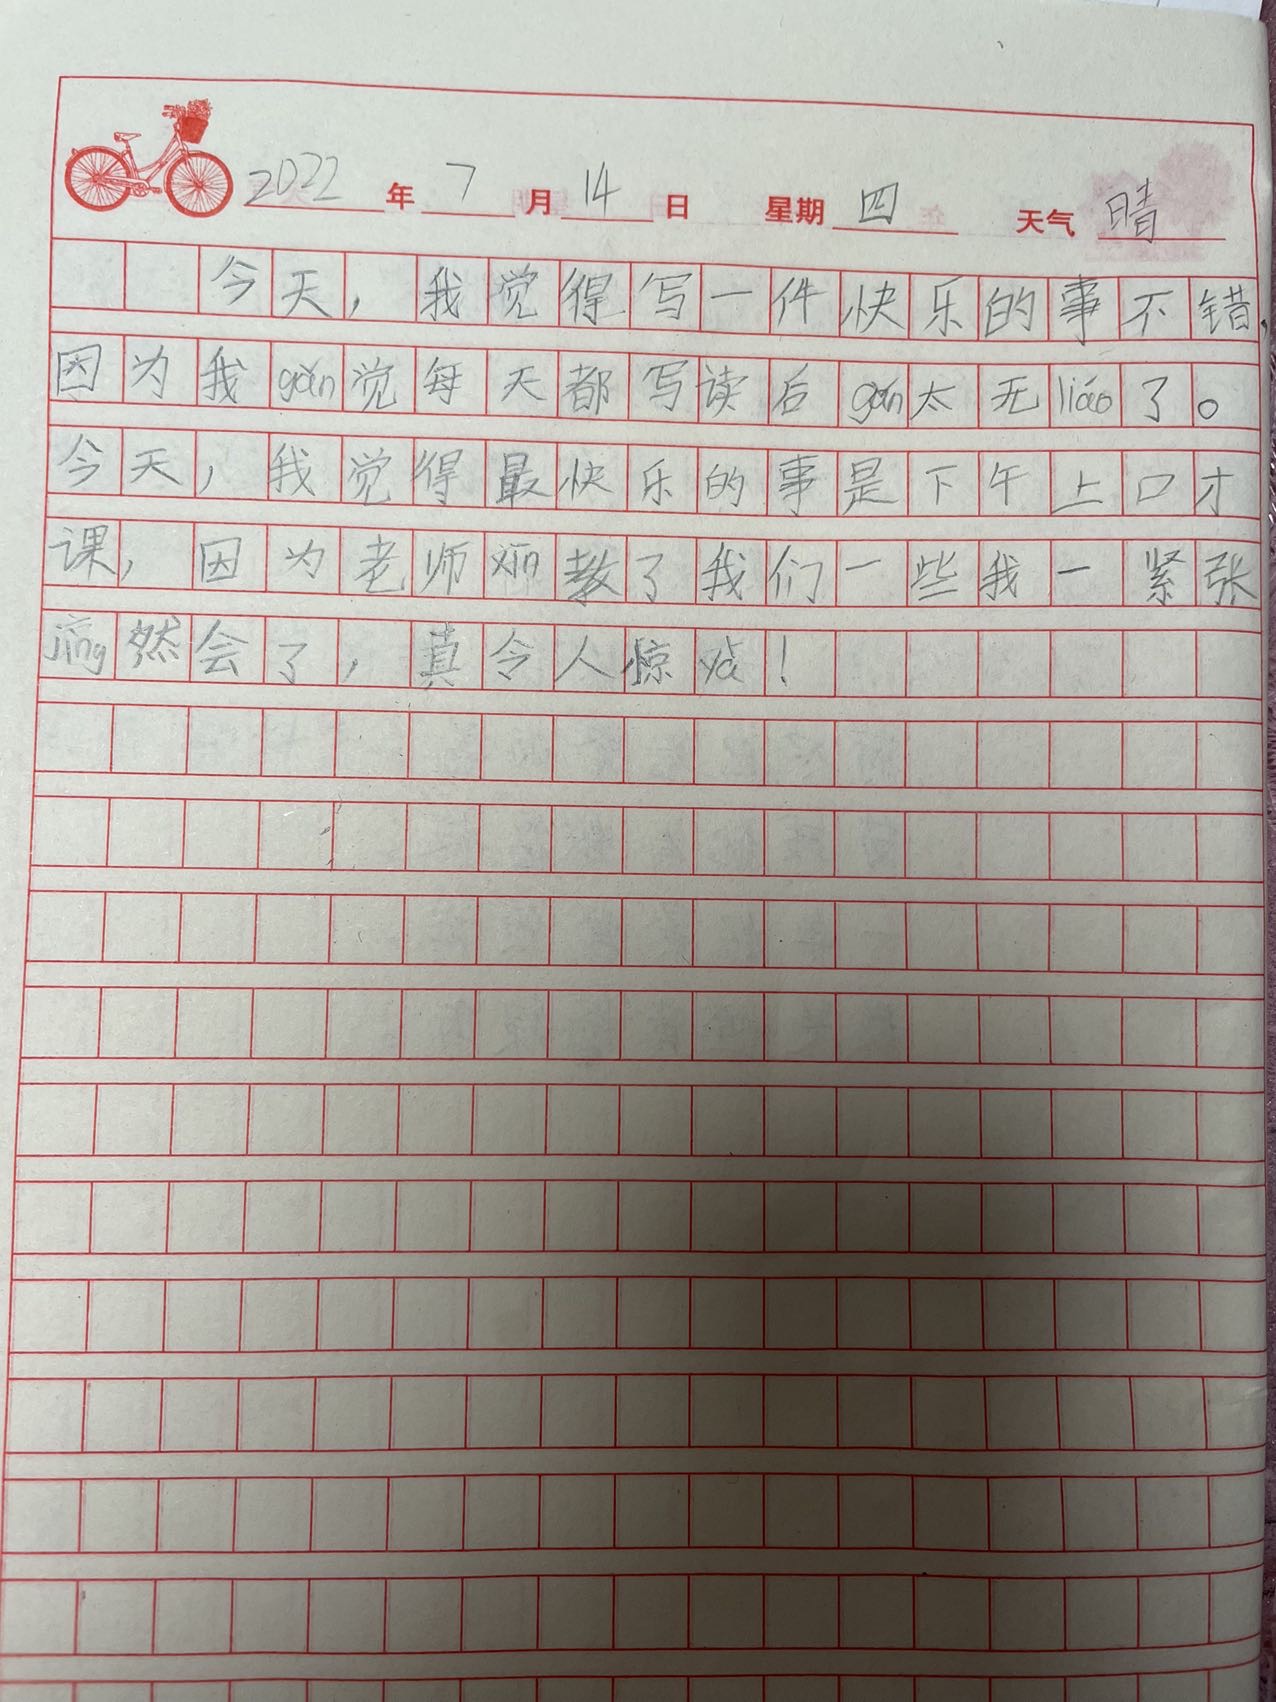 2022年7月14日 星期四 天气 晴
今天，我觉得写一件快乐的事不错，
因为我gǎn觉每天都写读后gǎn太无liáo了。
今天，我觉得最快乐的事是下午上口才
课，因为老师教了我们一些我一紧张
jìng然会了，真令人惊yà！